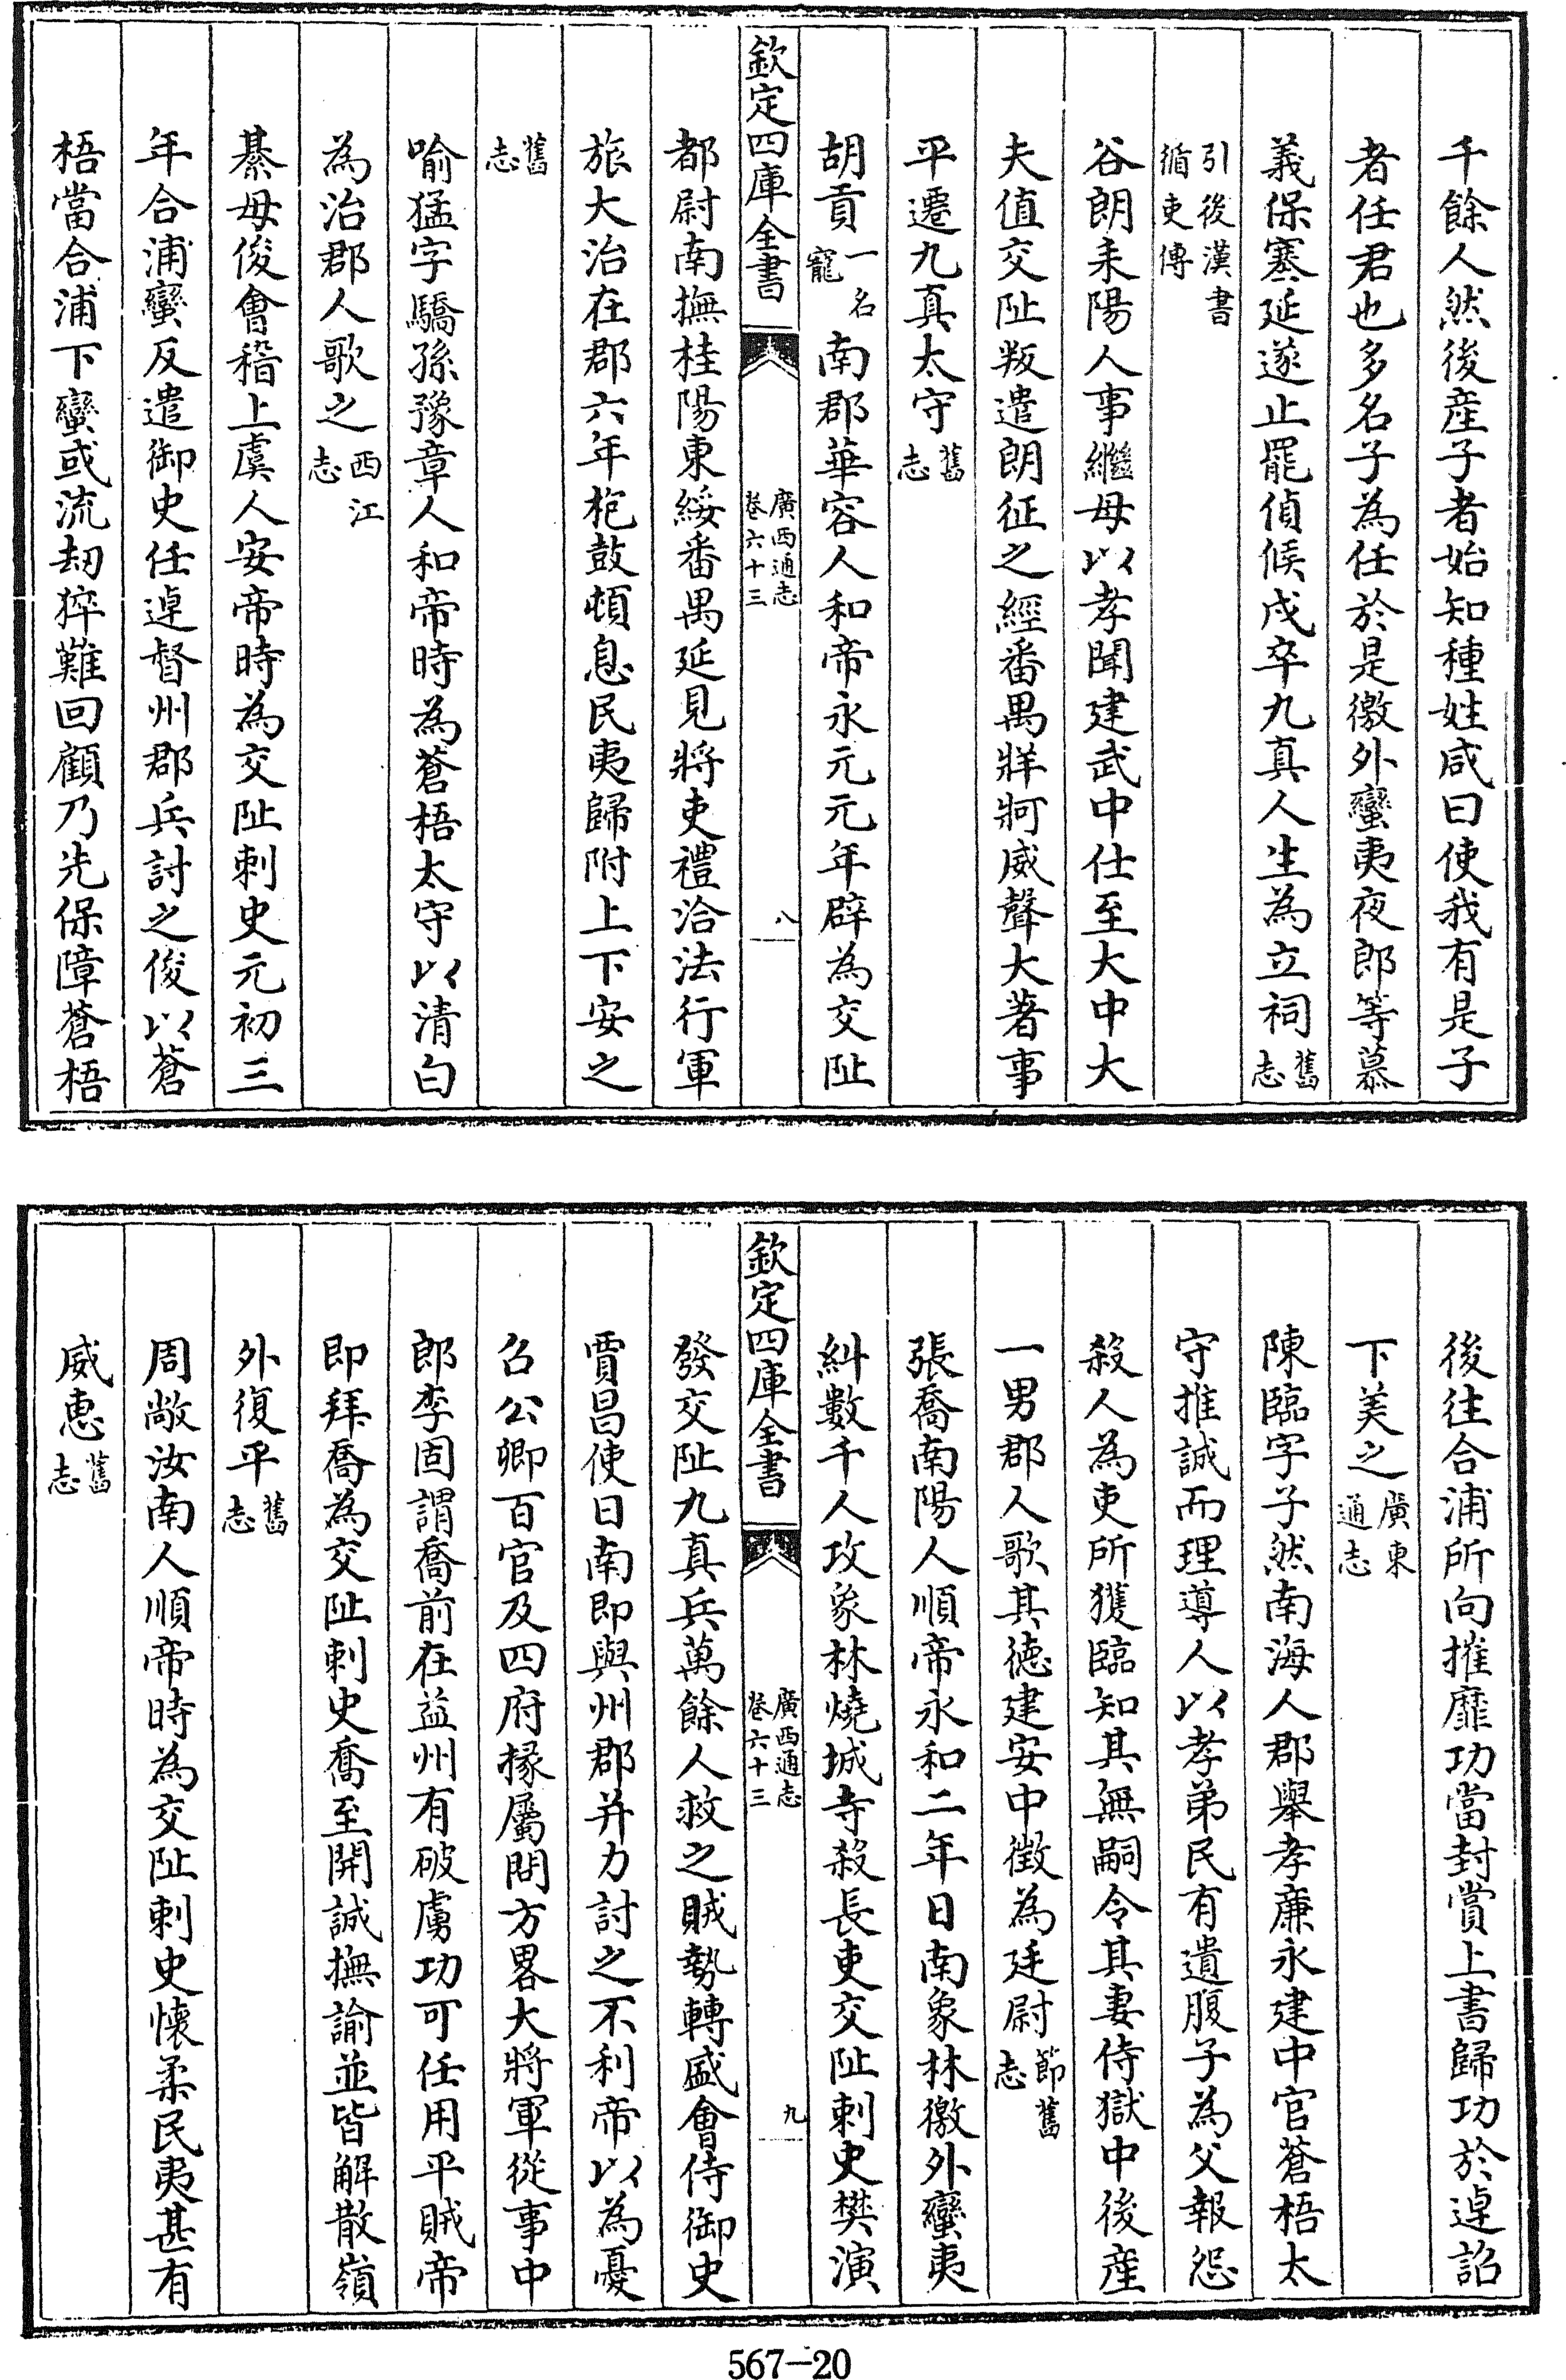 千餘人然後産子者始知種姓咸曰使我有是子
者任君也多名子為任於是徼外蠻夷夜郎等慕
義保塞延遂止罷偵候戍卒九真人生為立祠舊志
引後漢書循吏傳
谷朗耒陽人事繼母以孝聞建武中仕至大中大
夫值交阯叛遣朗征之經番禺牂牁威聲大著事
平遷九真太守舊志
胡貢一名寵南郡華容人和帝永元元年辟為交阯
欽定四庫全書 廣西通志卷六十三 八
都尉南撫桂陽東綏番禺延見將吏禮洽法行軍
旅大治在郡六年枹鼓頓息民夷歸附上下安之
舊志
喻猛字驕孫豫章人和帝時為蒼梧太守以清白
為治郡人歌之西江志
綦毋俊會稽上虞人安帝時為交阯刺史元初三
年合浦蠻反遣御史任逴督州郡兵討之俊以蒼
梧當合浦下蠻或流刼猝難回顧乃先保障蒼梧
後往合浦所向摧靡功當封賞上書歸功於逴詔
下美之廣東通志
陳臨字子然南海人郡舉孝廉永建中官蒼梧太
守推誠而理導人以孝弟民有遺腹子為父報怨
殺人為吏所獲臨知其無嗣令其妻侍獄中後産
一男郡人歌其徳建安中徴為廷尉節舊志
張喬南陽人順帝永和二年日南象林徼外蠻夷
糾數千人攻象林燒城寺殺長吏交阯刺史樊演
欽定四庫全書 廣西通志卷六十三 九
發交阯九真兵萬餘人救之賊勢轉盛會侍御史
賈昌使日南即與州郡并力討之不利帝以為憂
召公卿百官及四府掾屬問方畧大將軍從事中
郎李固謂喬前在益州有破虜功可任用平賊帝
即拜喬為交阯刺史喬至開誠撫諭並皆解散嶺
外復平舊志
周敞汝南人順帝時為交阯刺史懷柔民夷甚有
威恵舊志
567—20